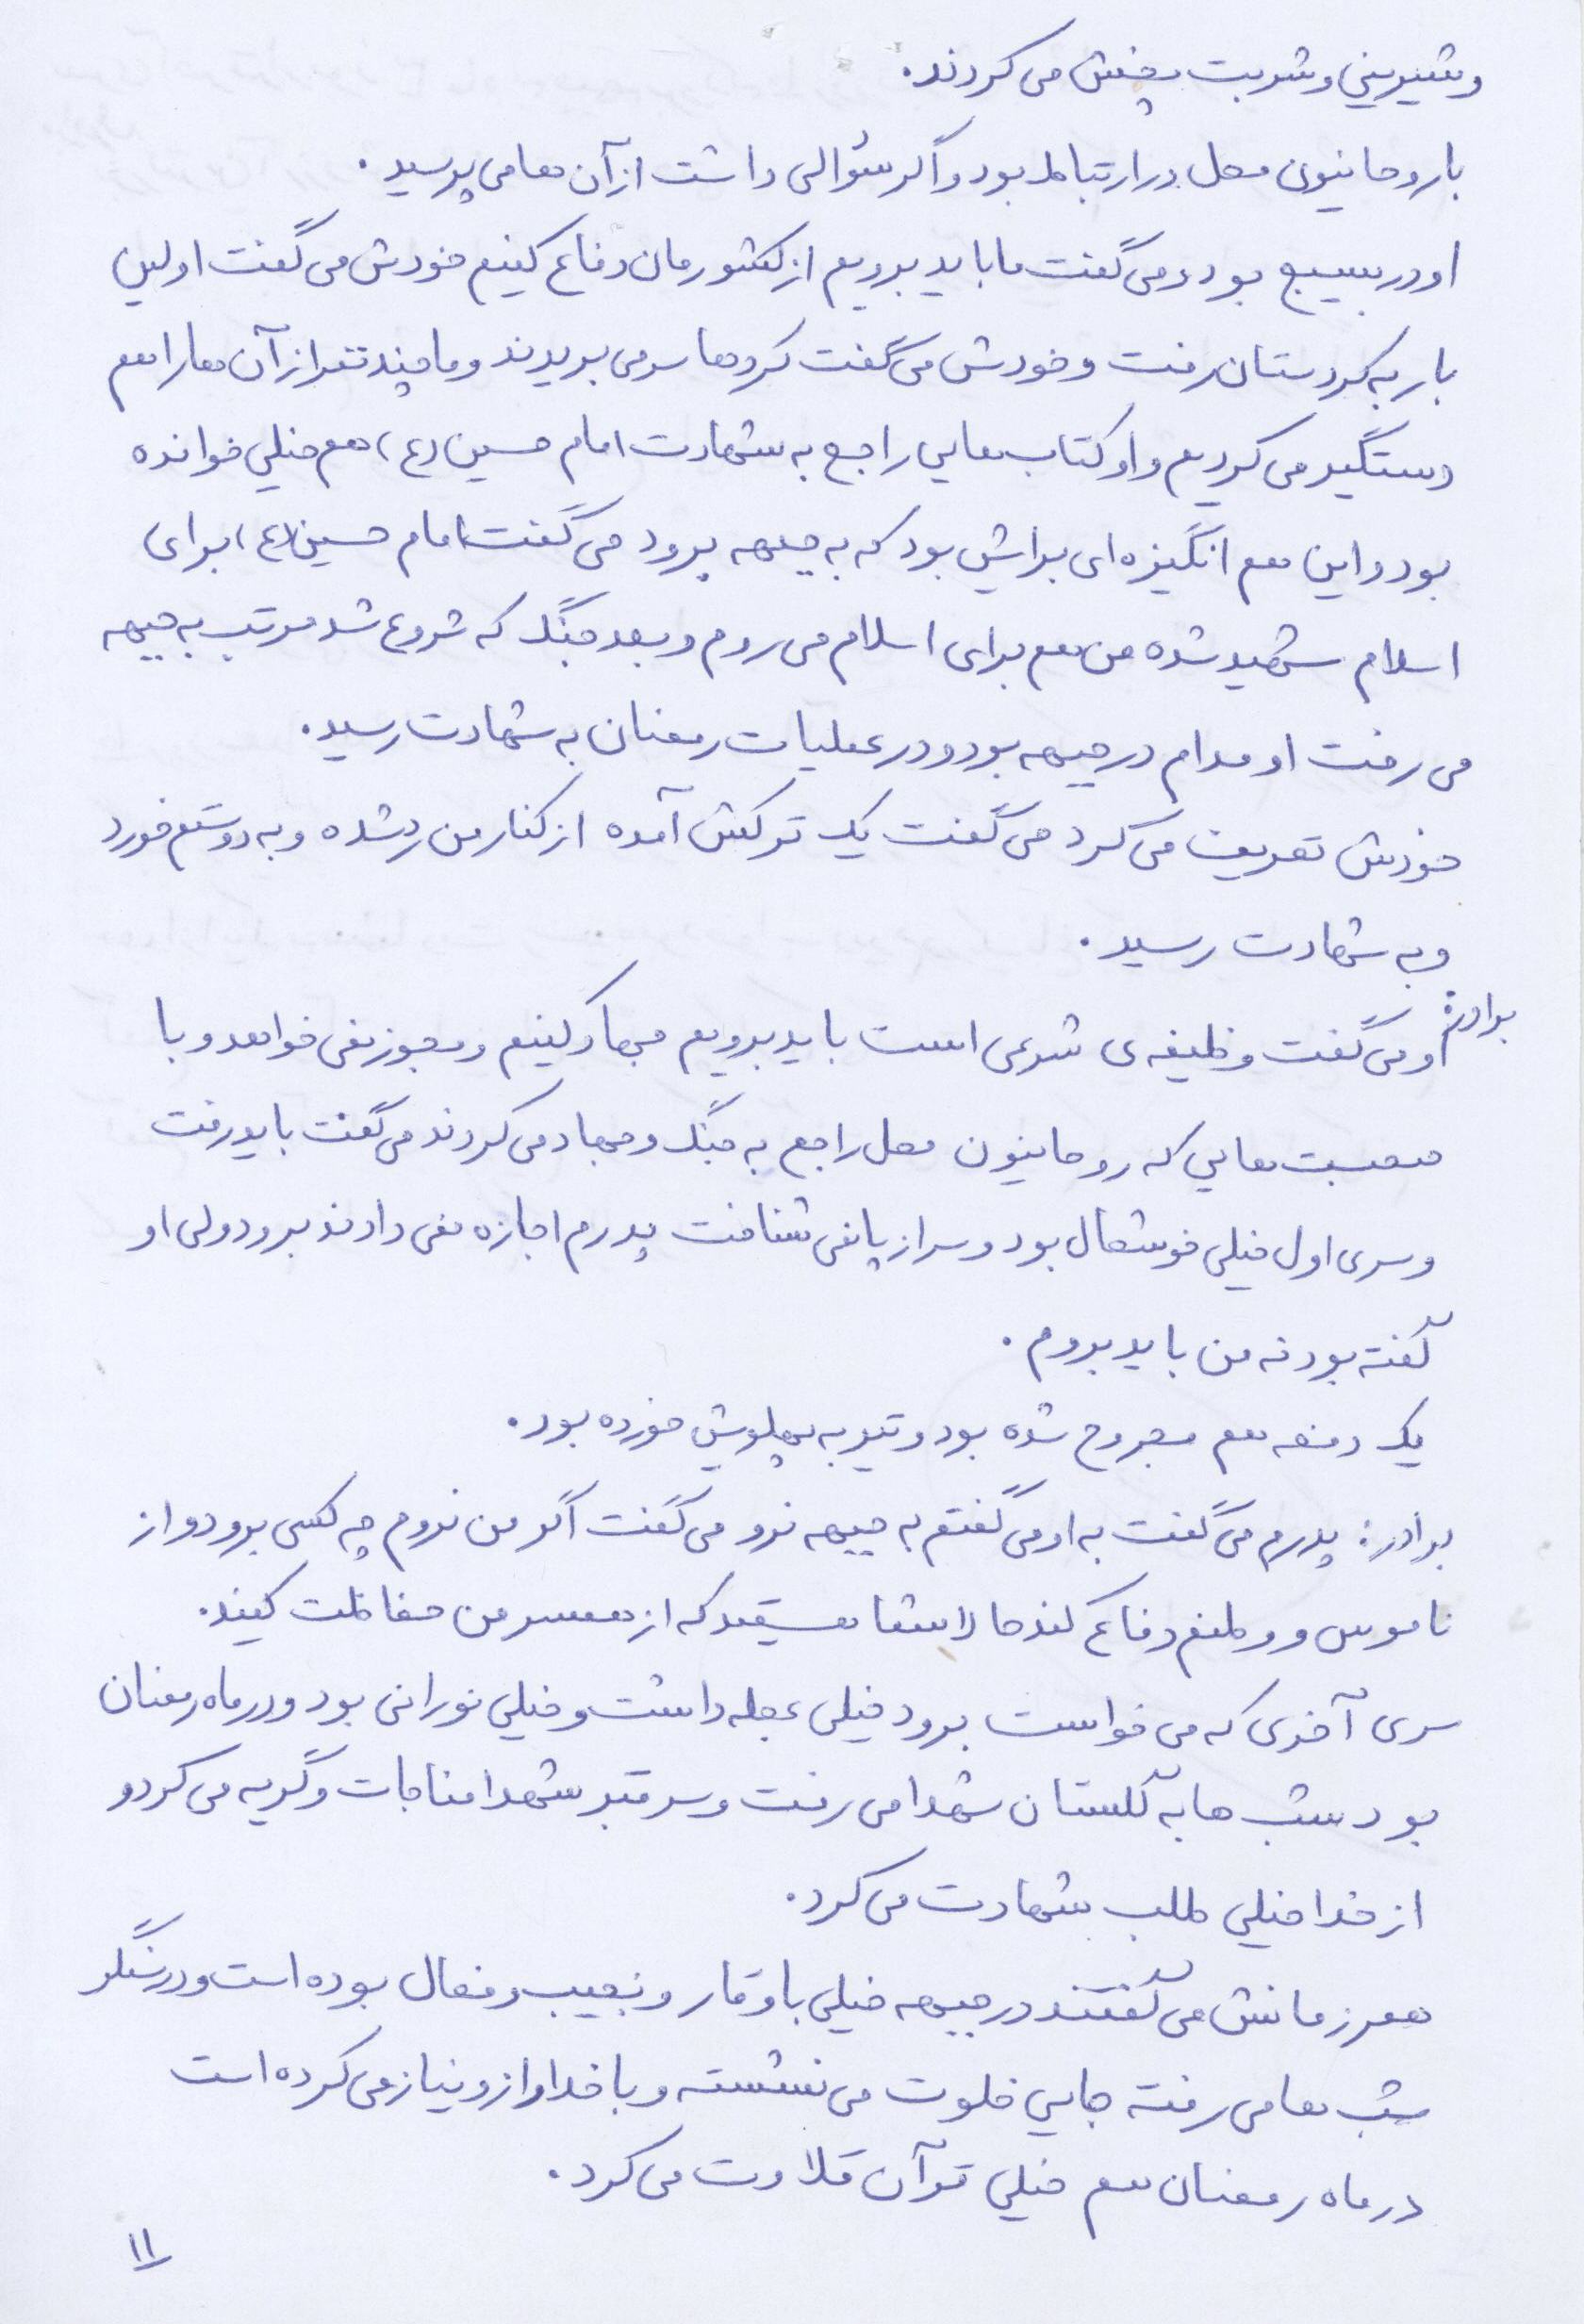 وشیرینی وشربت پخش می کردند.
با روحانیون محل در ارتباط بود و اگر سئوالی داشت از آن ها می پرسید.
او در بسیج بود و می گفت ما باید برویم از کشورمان دفاع کنیم خودش می گفت اولین
بار به کردستان رفت و خودش می گفت کردها سر می بریدند و ما چند نفر از آن ها را هم
دستگیر می کردیم و او کتاب هایی راجع به شهادت امام حسین (ع) هم خیلی خوانده
بود و این هم انگیزه ای برایش بود که به جبهه برود می گفت امام حسین (ع) برای
اسلام شهید شده من هم برای اسلام می روم و بعد جنگ که شروع شد مرتب به جبهه
می رفت او مدام در جبهه بود و در عملیات رمضان به شهادت رسید.
خودش تعریف می کرد می گفت یک ترکش آمده از کنار من رد شده و به دوستم خورد
و به شهادت رسید.
برادر: او می گفت وظیفه ی شرعی است باید برویم جهاد کنیم و مجوز نمی خواهد و با
صحبت هایی که روحانیون محل راجع به جنگ و جهاد می کردند می گفت باید رفت
و سری اول خیلی خوشحال بود و سر از پا نمی شناخت پدرم اجازه نمی دادند برود ولی او
گفته بود نه من باید بروم.
یک دفعه هم مجروح شده بود و تیر به پهلویش خورده بود.
برادر: پدرم می گفت به او می گفتم به جبهه نرو می گفت اگر من نروم چه کسی برود و از
ناموس و وطنم دفاع کند حالا شما هستید که از همسر من حفاظت کنید.
سری آخری که می خواست برود خیلی عجله داشت و خیلی نورانی بود و در ماه رمضان
بود شب ها به گلستان شهدا می رفت و سر قبر شهدا مناجات و گریه می کرد و
از خدا خیلی طلب شهادت می کرد.
همرزمانش می گفتند در جبهه خیلی با وقار و نجیب و فعال بوده است و در سنگر
شب ها می رفته جایی خلوت می نشسته و با خدا راز و نیاز می کرده است
در ماه رمضان هم خیلی قرآن تلاوت می کرد.
۱۱